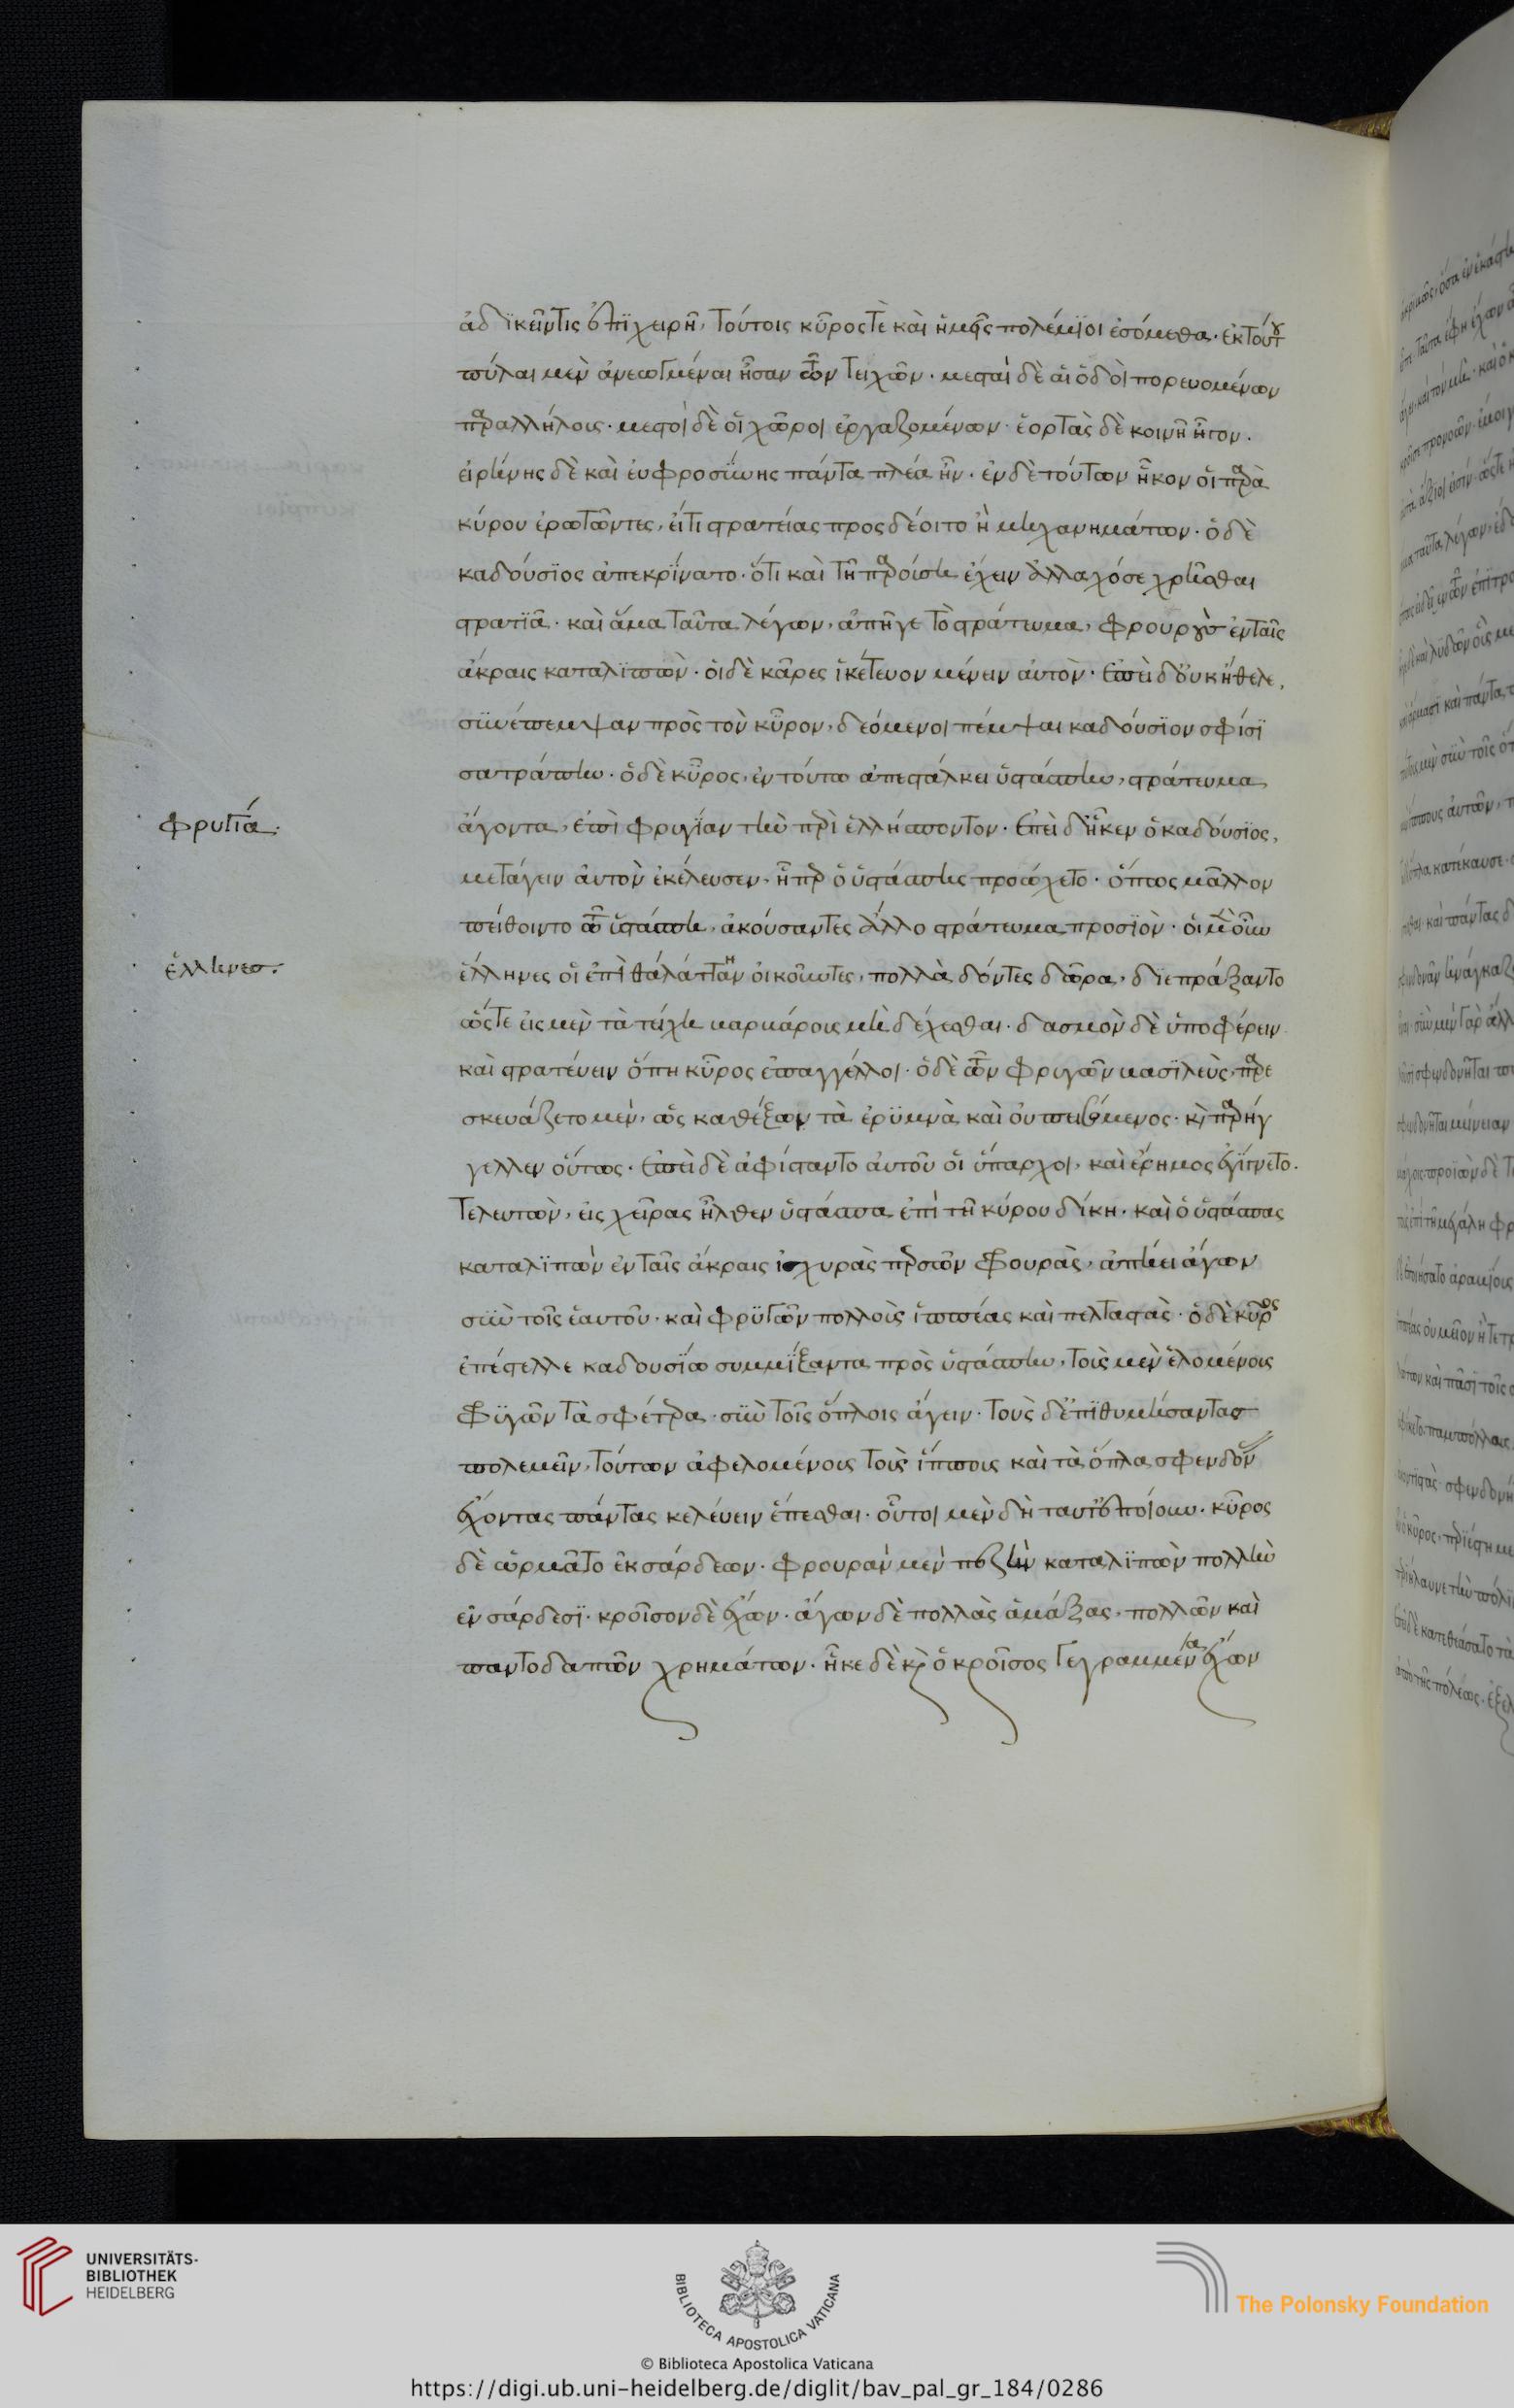 ἀδϊκεῖν τις ἐπϊχειρῆ, τούτοις κῦρος τὲ καὶ ἡμεῖς πολέμϊοι ἐσόμεθα. ἐκ τούτου
πύλαι μὲν ἀνεωγμέναι ἦσαν τῶν τειχῶν. μεσταὶ δὲ αἱ ὁδοὶ πορευομένων
παραλλήλοις. μεστοὶ δὲ οἱ χῶροι ἐργαζομένων. ἑορτὰς δὲ κοινῆ ἦγον.
εἰρήνης δὲ καὶ ἐυφροσύνης πάντα πλέα ἦν. ἐν δὲ τούτων ἧκον οἱ παρὰ
κύρου ἐρωτῶντες, εἴ τι στρατείας προσδέοιτο ἢ μηχανημάτων. ὁ δὲ
καδούσϊος ἀπεκρίνατο. ὅτι καὶ τῆ παρούση ἔχειν ἀλλαχόσε χρῆσθαι
στρατϊᾶ. καὶ ἅμα ταῦτα λέγων, ἀπῆγε τὸ στράτευμα, φρουροὺς ἐν ταῖς
ἄκραις καταλϊπὼν. οἱ δὲ κᾶρες ἱκέτευον μένειν ἀυτὸν. ἐπεὶ δ' ὀυκ ἤθελε,
συνέπεμψαν πρὸς τὸν κῦρον, δεόμενοι πέμψαι καδούσϊον σφίσϊ
σατράπην. ὁ δὲ κῦρος, ἐν τούτω ἀπεστάλκει ὑστάσπην, στράτευμα
φρυγία.
ἄγοντα, ἐπὶ φρυγίαν τὴν περὶ ἑλλήσποντον. ἐπεὶ δ' ἧκεν ὁ καδούσϊος,
μετάγειν ἀυτὸν ἐκέλευσεν, ἧπερ ὁ ὑστάσπης προώχετο. ὅπως μᾶλλον
πείθοιντο τῶ ὑστάσπη, ἀκούσαντες ἄλλο στράτευμα προσϊὸν. οἱ μὲν οὖν
ἕλληνεσ.
ἕλληνες οἱ ἐπὶ θαλάττη οἰκοῦντες, πολλὰ δόντες δῶρα, δϊεπράξαντο
ὥστε εἰς μὲν τὰ τείχη βαρβάρους μὴ δέχεσθαι. δασμὸν δὲ ὑποφέρειν
καὶ στρατεύειν ὅπη κῦρος ἐπαγγέλλοι. ὁ δὲ τῶν φρυγῶν βασιλεὺς, παρε
σκευάζετο μὲν, ὡς καθέξων τὰ ἐρυμνὰ καὶ ὀυ πεισόμενος. καὶ παρήγ
γελλεν οὕτως. ἐπεὶ δὲ ἀφίσταντο ἀυτοῦ οἱ ὕπαρχοι, καὶ ἔρημος ἐγίγνετο.
τελευτῶν, εἰς χεῖρας ἦλθεν ὑστάσπα ἐπὶ τῆ κύρου δίκη. καὶ ὁ ὑστάσπας
καταλϊπὼν ἐν ταῖς ἄκραις ἰσχυρὰς περσῶν φουρὰς, ἀπήει ἄγων
σὺν τοῖς ἑαυτοῦ. καὶ φρυγῶν πολλοὺς ἱππέας καὶ πελταστὰς. ὁ δὲ κῦρος
ἐπέστελλε καδουσίω συμμίξαντα πρὸς ὑστάσπην, τοὺς μὲν ἑλομένους
φυγῶν τὰ σφέτερα. σὺν τοῖς ὅπλοις ἄγειν. τοὺς δ' ἐπϊθυμήσαντασ
πολεμεῖν, τούτων ἀφελομένους τοὺς ἵππους καὶ τὰ ὅπλα σφενδόνας
ἔχοντας πάντας κελεύειν ἕπεσθαι. οὗτοι μὲν δὴ ταῦτ' ἐποίουν. κῦρος
δὲ ὡρμᾶτο ἐκ σάρδεων. φρουρὰν μὲν πεζὴν καταλϊπὼν πολλὴν
ἐν σάρδεσϊ. κροῖσον δὲ ἔχων. ἄγων δὲ πολλὰς ἁμάξας, πολλῶν καὶ
παντοδαπῶν χρημάτων. ἧκε δὲ καὶ ὁ κροῖσος γεγραμμένα ἔχων
UNIVERSITÄTS-
BIBLIOTHEK
HEIDELBERG
BIBLIOTECA APOSTOLICA VATICANA
The Polonsky Foundation
© Biblioteca Apostolica Vaticana
https://digi.ub.uni-heidelberg.de/diglit/bav_pal_gr_184/0286